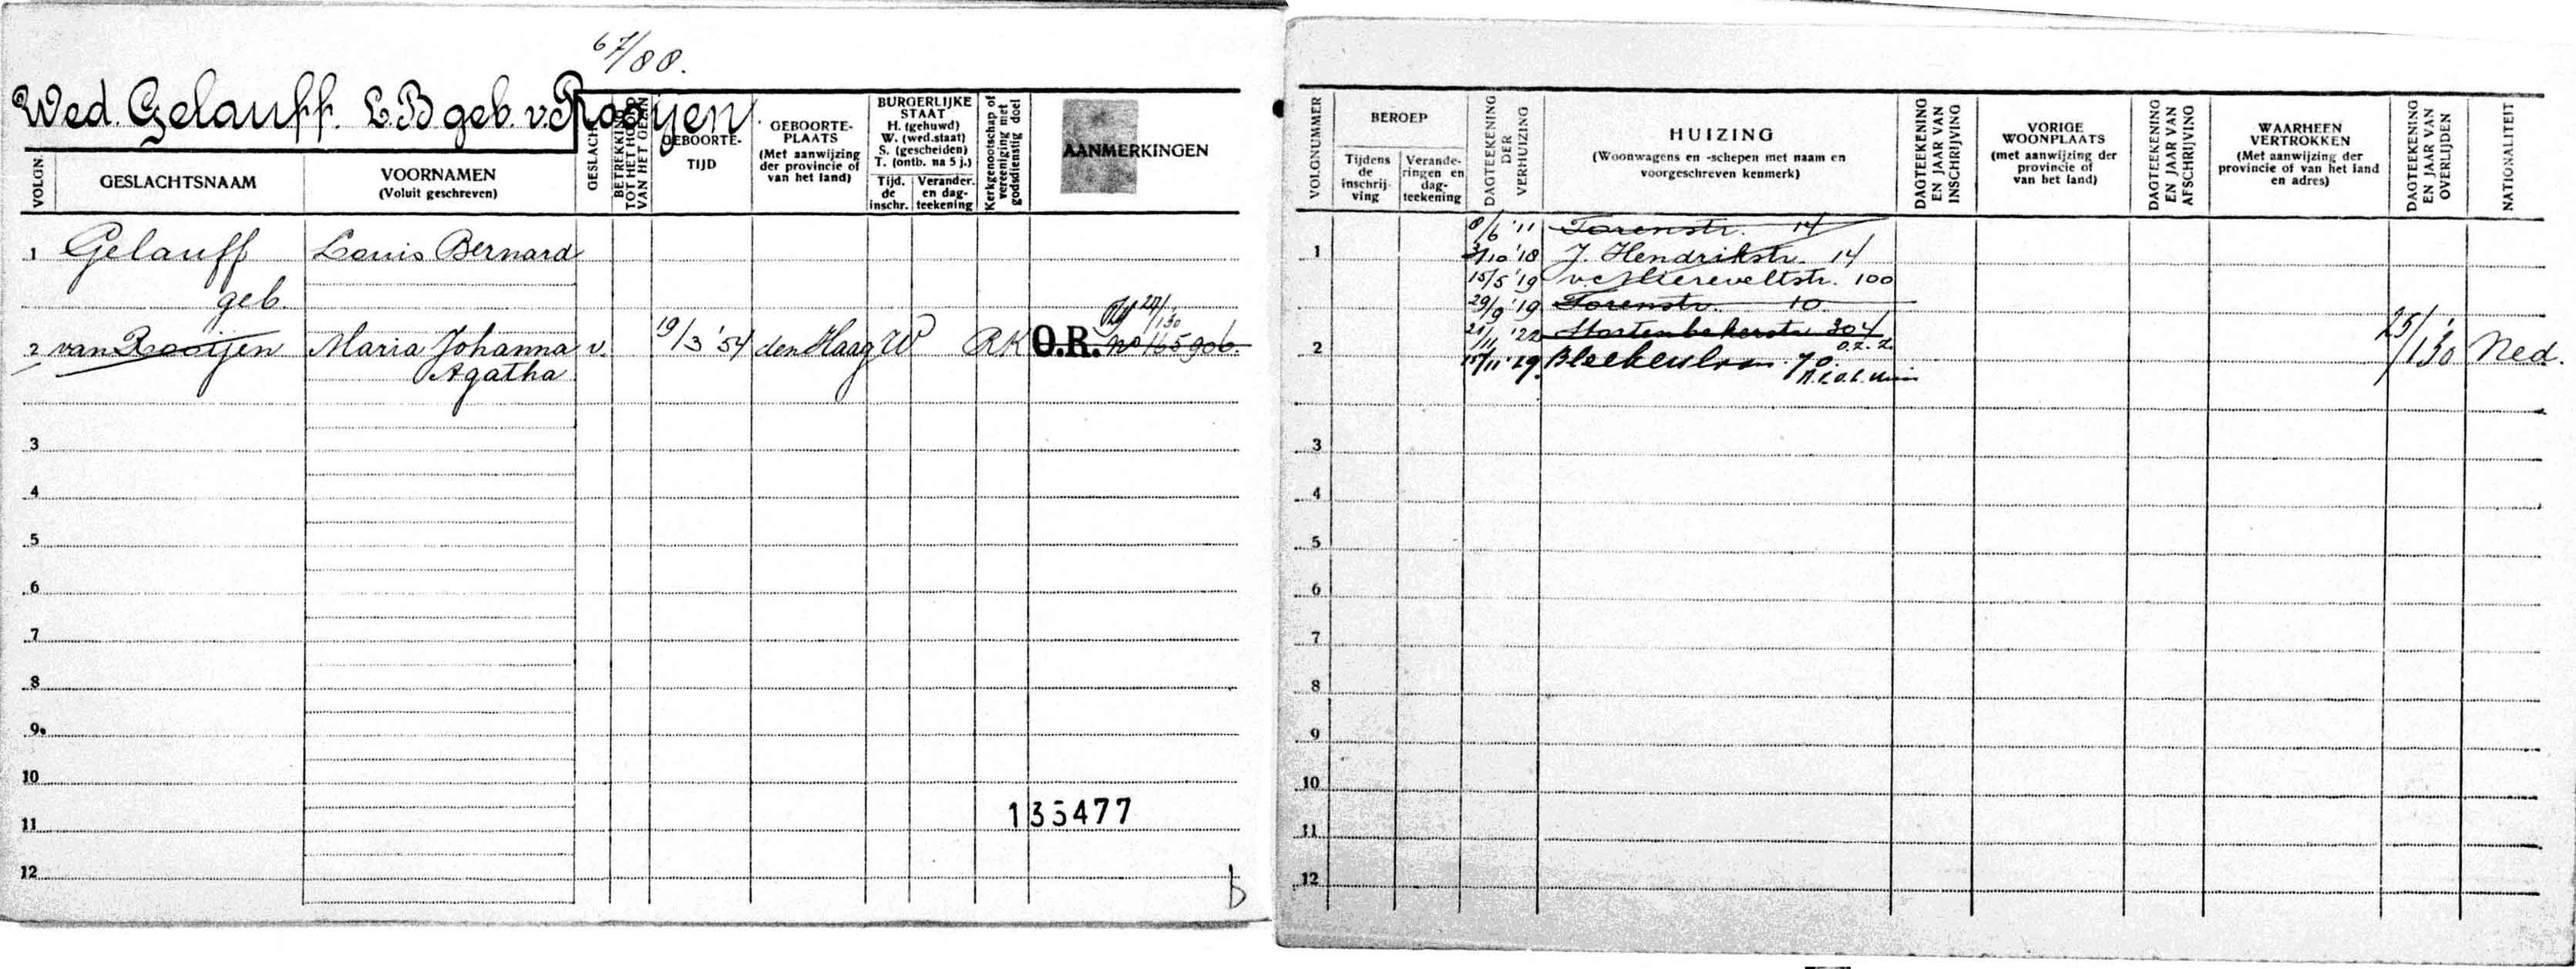 67/88.
Wed. Gelauff. L.B geb. v. Rooijen.
VOLGN.
GESLACHTSNAAM
VOORNAMEN
(Voluit geschreven)
GESLACHT
BETREKKING
TOT HET HOOFD
VAN HET GEZIN
GEBOORTE-
TIJD
GEBOORTE-
PLAATS
(Met aanwijzing
der provincie of
van het land)
BURGERLIJKE
STAAT
H. (gehuwd)
W. (wed.staat)
S. (gescheiden)
T. (ontb. na 5 j.)
Tijd.
de
inschr.
Verander.
en dag-
teekening
Kerkgenootschap of
vereeniging met
godsdienstig doel
AANMERKINGEN
1 Gelauff Louis Bernard
geb.
2 van Rooijen Maria Johanna v. 19/3 '54 den Haag W RK O.R. no 165906.
Agatha
3
4
5
6
7
8
9
10
11
12
135477
b
VOLGNUMMER
BEROEP
Tijdens
de
inschrij-
ving
Verande-
ringen en
dag-
teekening
DAGTEEKENING
DER
VERHUIZING
HUIZING
(Woonwagens en -schepen met naam en
voorgeschreven kenmerk)
DAGTEEKENING
EN JAAR VAN
INSCHRIJVING
VORIGE
WOONPLAATS
(met aanwijzing der
provincie of
van het land)
DAGTEEKENING
EN JAAR VAN
AFSCHRIJVING
WAARHEEN
VERTROKKEN
(Met aanwijzing der
provincie of van het land
en adres)
DAGTEEKENING
EN JAAR VAN
OVERLIJDEN
NATIONALITEIT
8/6 '11 Torenstr. 14
1 3/10 '18 J. Hendrikstr. 14
15/5 '19 v. Miereveltstr. 100
29/9 '19 Torenstr. 10
21/11 '22 304
o.z.z.
2 15/11 '29 70 25/1 '30 Ned.
3
4
5
6
7
8
9
10
11
12